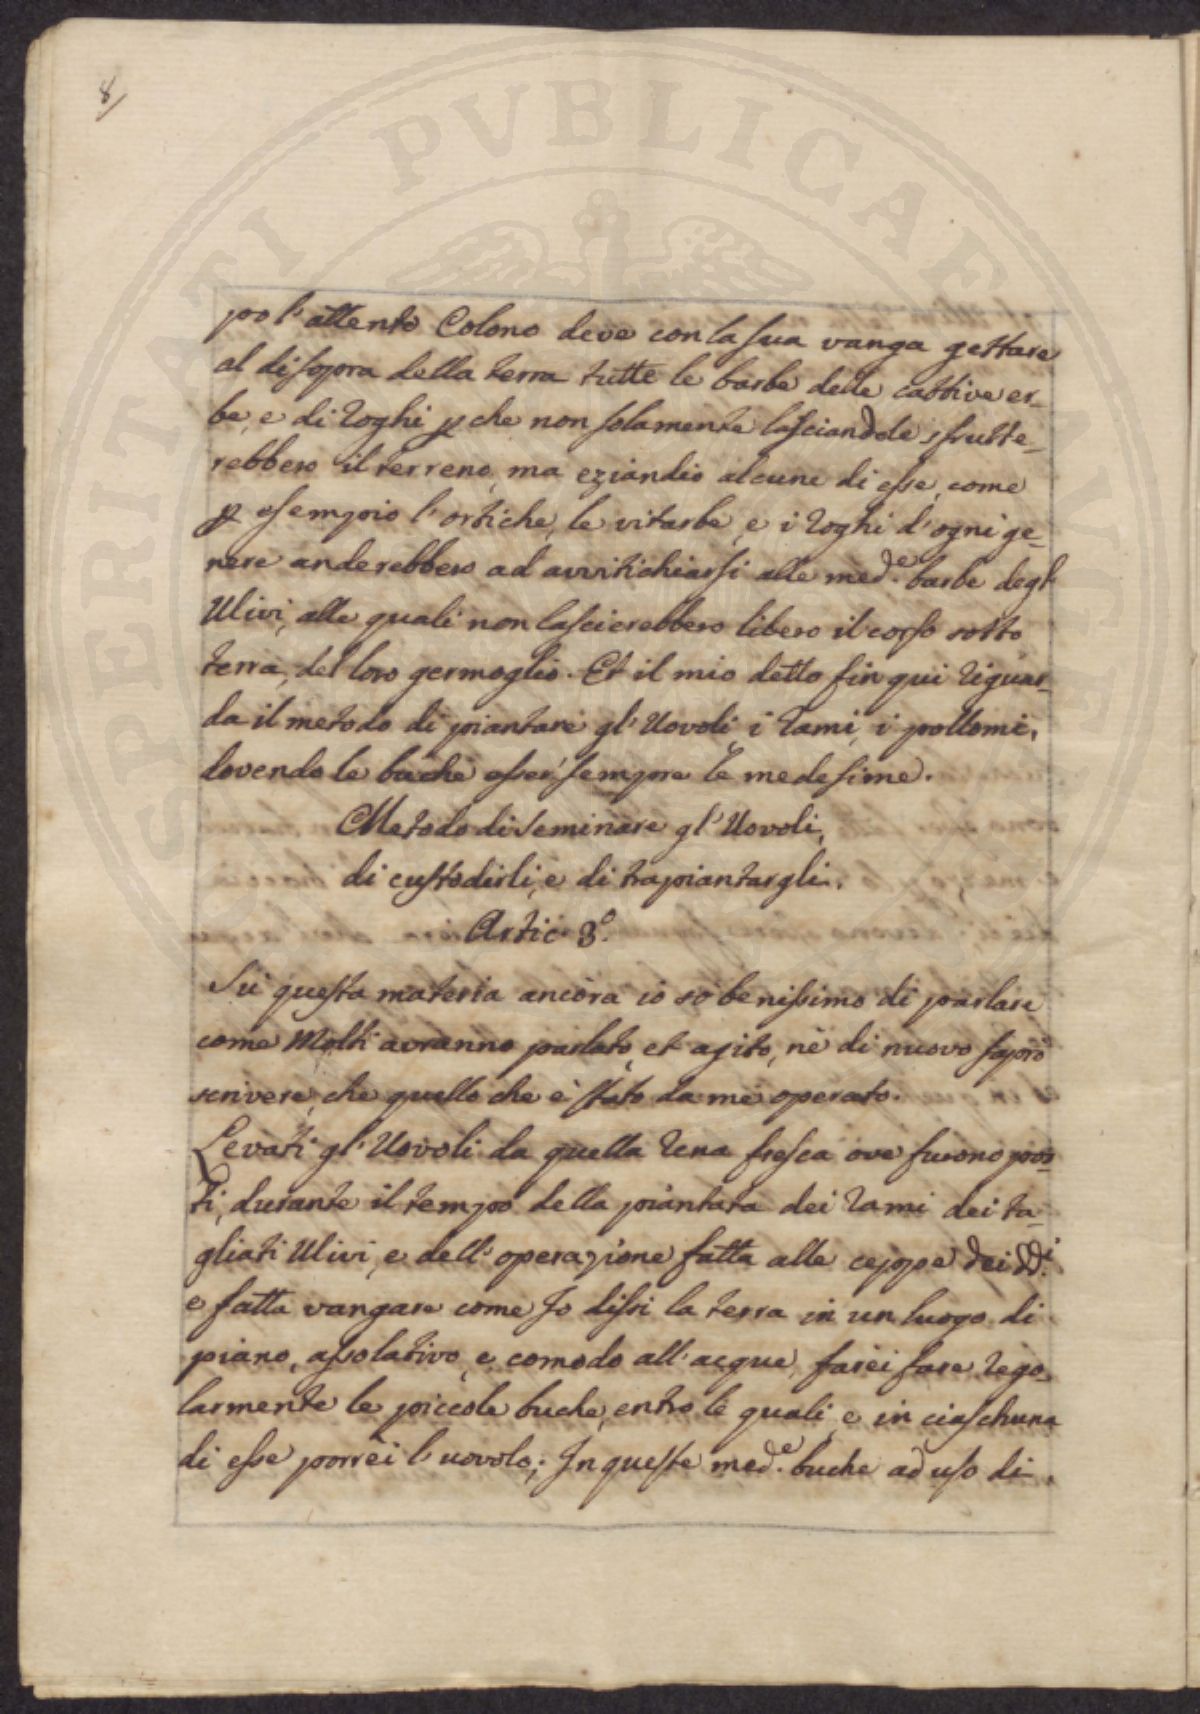 8/
PROSPERITATI PVBLICAE AVGENDAE
po l'attento Colono deve con la sua vanga gettare
al disopra della terra tutte le barbe delle cattive er-
be, e di roghi p che non solamente lasciandole sfrutte-
rebbero il terreno, ma eziandio alcune di esse, come
p esempio l'ortiche, le vitarbe, e i roghi d'ogni ge-
nere anderebbero ad avvitichiarsi alle med.e barbe degl'
Ulivi, alle quali non lascierebbero libero il corso sotto
terra, del loro germoglio. Et il mio detto fin qui riguar-
da il metodo di piantare gl'Uovoli, i rami, i polloni,
dovendo le buche esser sempre le medesime.
Metodo di seminare gl'Uovoli,
di custodirli, e di trapiantargli.
Artic. 3.o
Su questa materia ancora io so benissimo di parlare
come Molti avranno parlato, et agito, nè di nuovo saprò
scrivere, che quello che è stato da me operato.
Levati gl'Uovoli da quella rena fresca ove furono pos-
ti, durante il tempo della piantata dei rami dei ta-
gliati Ulivi, e dell'operazione fatta alle ceppe dei dd.i
e fatta vangare come Io dissi la terra in un luogo di
piano, assolativo, e comodo all'acque, farei fare rego-
larmente le piccole buche, entro le quali, e in ciaschuna
di esse porrei l'uovolo; In queste med.e buche ad uso di